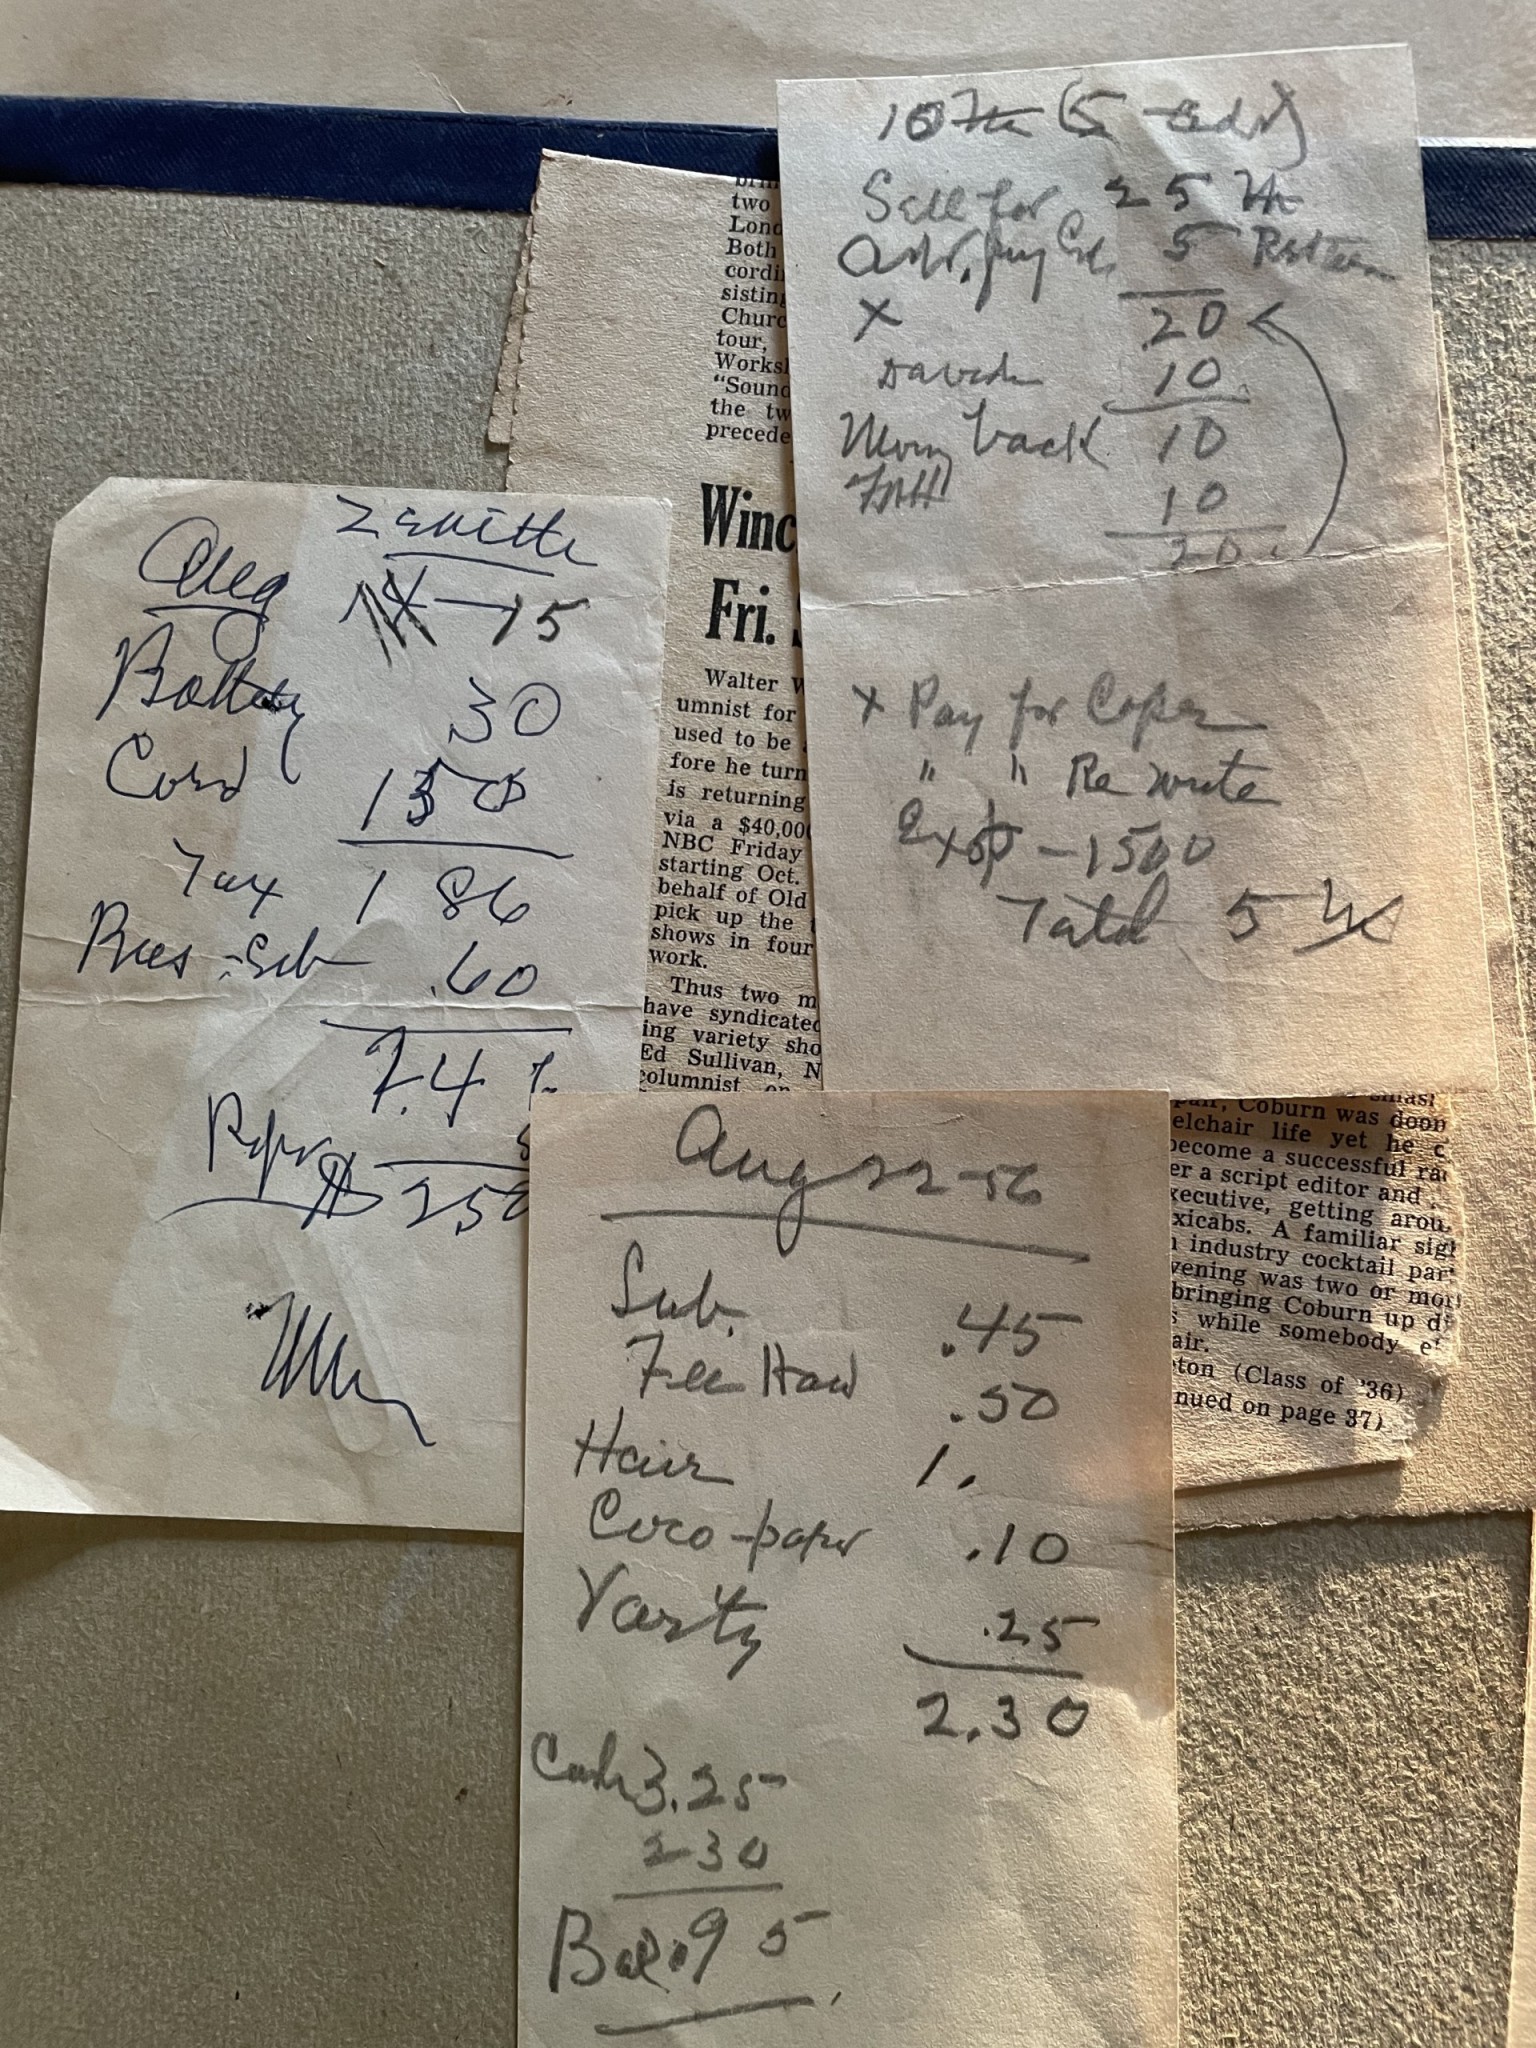 Zenith
Aug
15
Battery 30
Cord 150
Tax 1 86
Bus - Sub .60
2.4
Paper
$ 250
brin
two
Lond
Both
cordi
sisting
Churc
tour,
Works
"Sound
the tw
precede
Winc
Fri.
Walter W
umnist for
used to be
fore he turn
is returning
via a $40,000
NBC Friday
starting Oct.
behalf of Old
pick up the
shows in four
work.
Thus two m
have syndicated
ing variety sho
Ed Sullivan, N
columnist on
(5
Sell for 25
5 Return
X 20
10
Money back 10
10
20
X Pay for
" " Re write
Exp - 1500
Total 5
Coburn was doom
elchair life yet he c
become a successful ra
er a script editor and
xecutive, getting arou
xicabs. A familiar sig
industry cocktail par
vening was two or mor
bringing Coburn up
while somebody e
air.
ton (Class of '36)
nued on page 37)
Aug 22-56
Sub. .45
Fee Haw .50
Hair 1.
Coco-paper .10
Varity .25
2.30
Cash 3.25
230
Bal .95